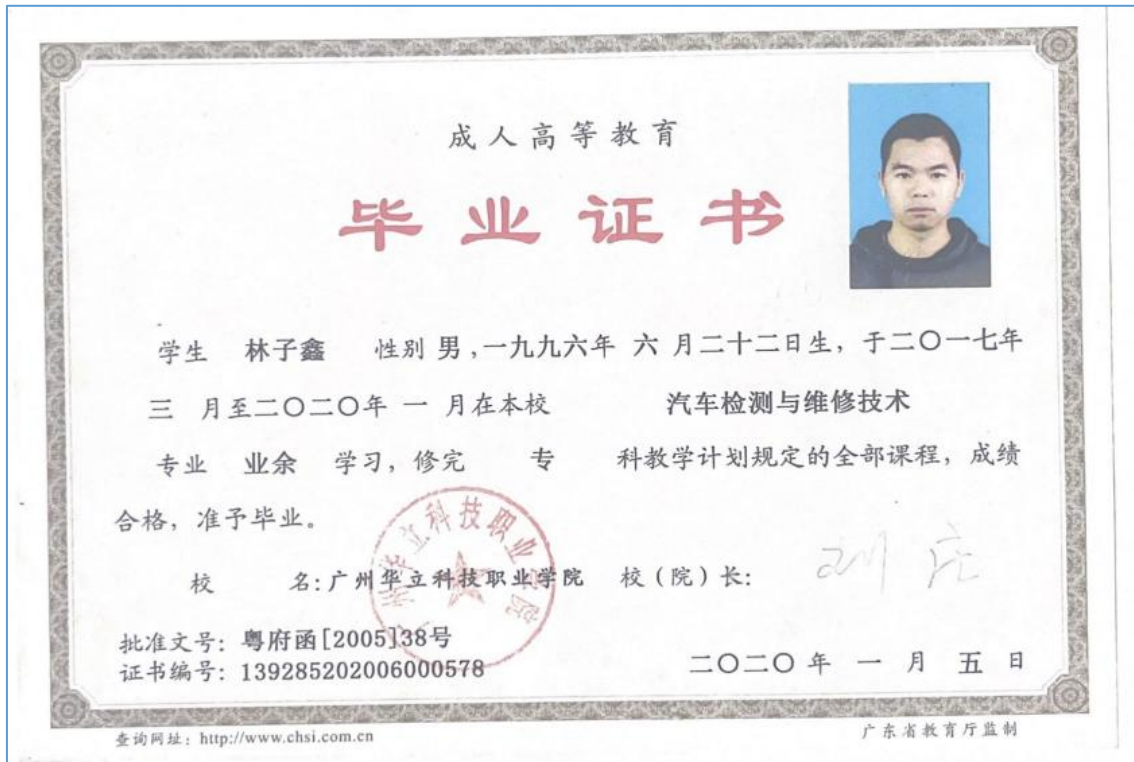 成人高等教育
毕业证书
学生 林子鑫 性别 男,一九九六年 六 月二十二日生，于二〇一七年
三 月至二〇二〇年 一 月在本校 汽车检测与维修技术
专业 业余 学习，修完 专 科教学计划规定的全部课程，成绩
合格，准予毕业。
校 名:广州华立科技职业学院 校（院）长:
批准文号：粤府函[2005]38号
证书编号：139285202006000578
二〇二〇 年 一 月 五 日
查询网址：http://www.chsi.com.cn
广东省教育厅监制